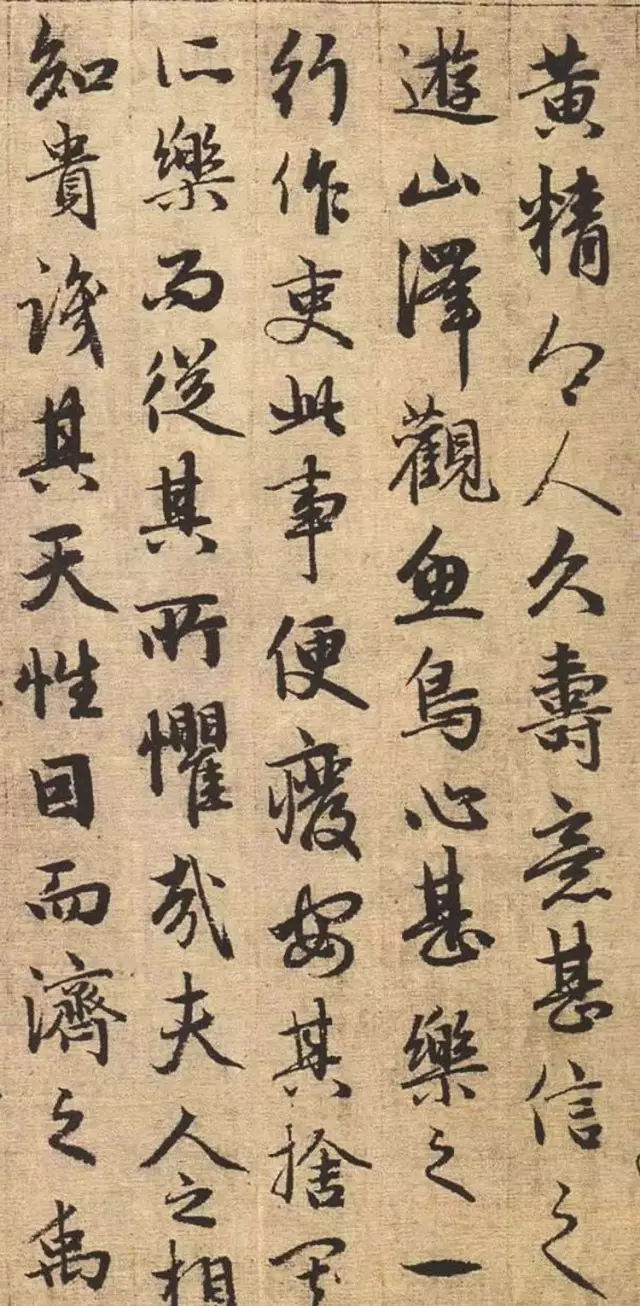 黄精令人久壽意甚信之
遊山澤觀魚鳥心甚樂之一
行作吏此事便癈安其捨其
所樂而從其所懼哉夫人之相
知貴識其天性因而濟之禹